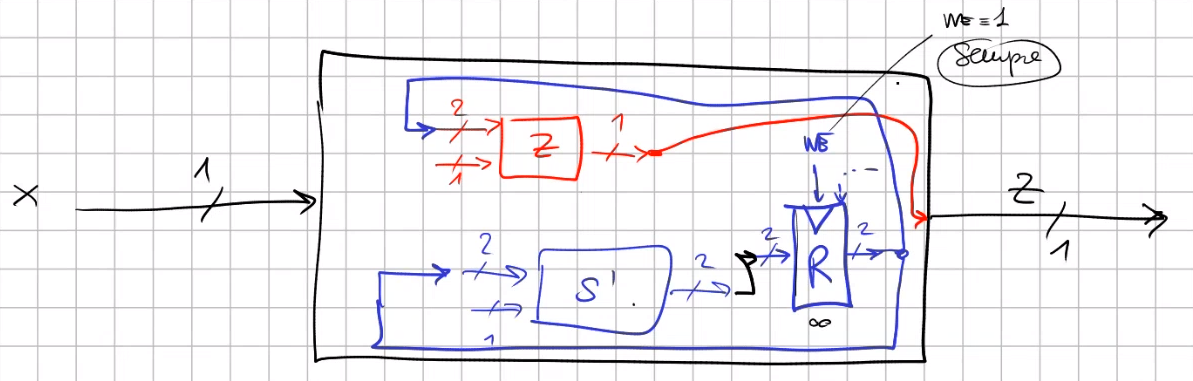 WE = 1
Sempre
2
1
Z
1
WE
X
1
Z
1
2
S'
2
2
R
2
1
∞